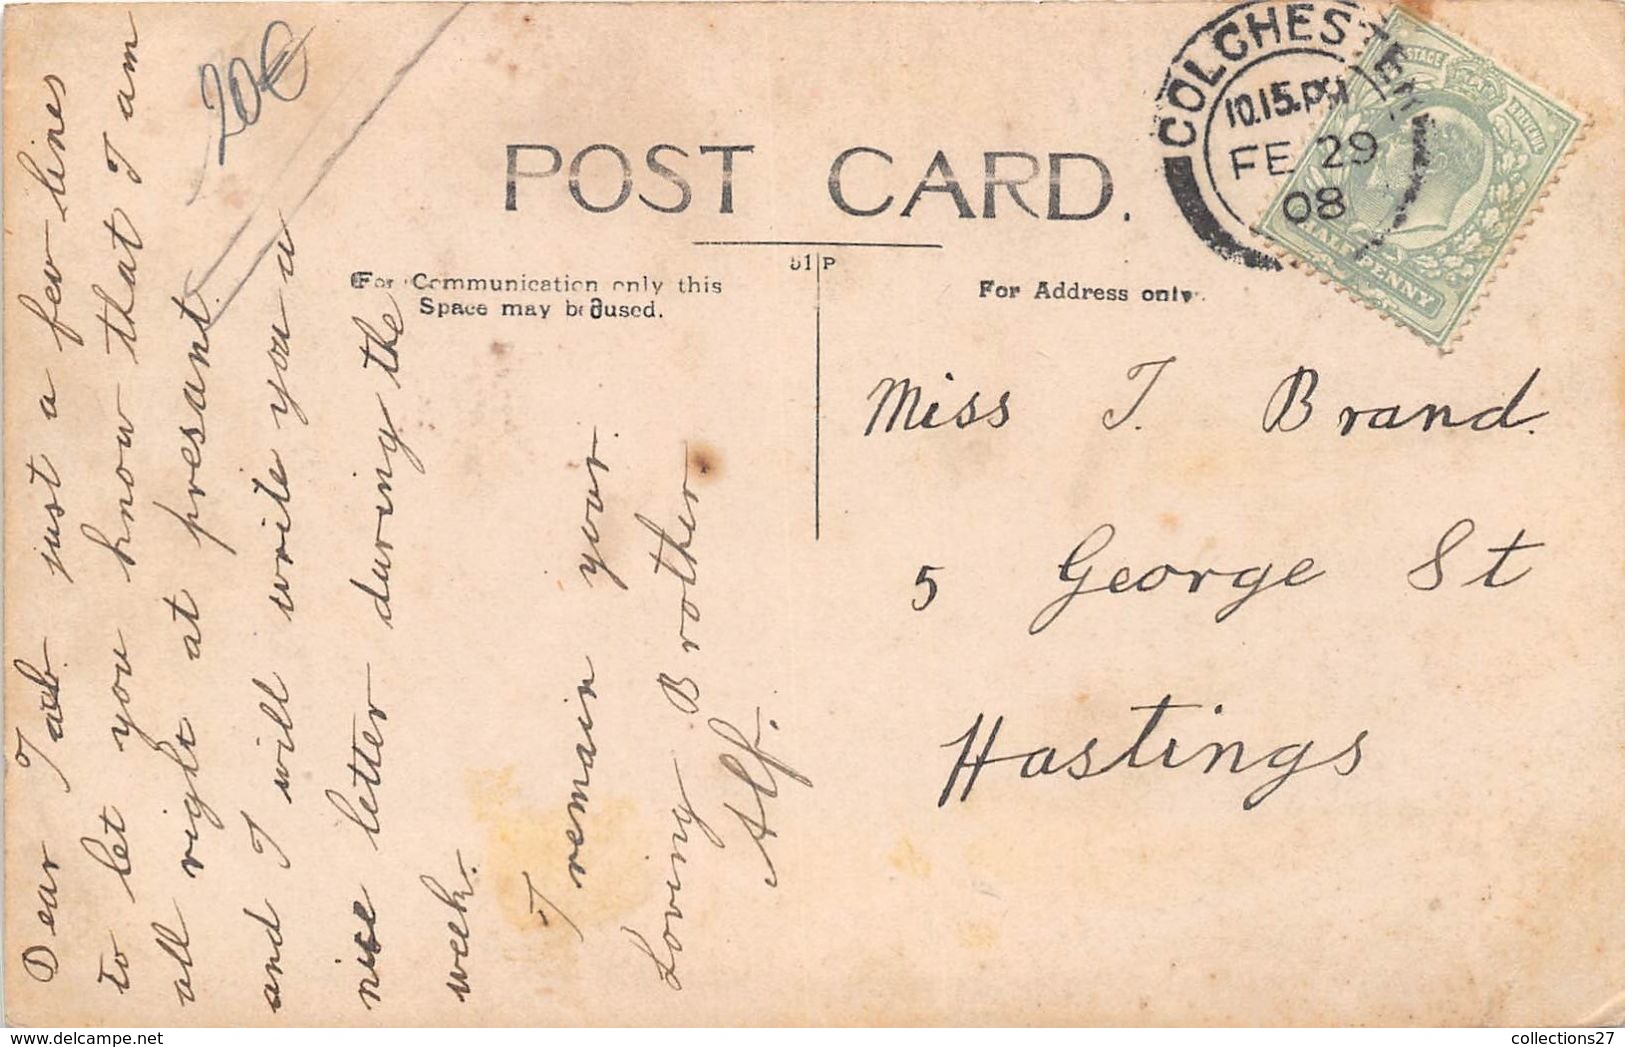 20€
POST CARD.
51 P
For Communication only this
Space may be used.
For Address only.
COLCHESTER
10.15.PM
FE 29
08
POSTAGE REVENUE
HALFPENNY
Dear just a few lines
to let you know that I am
all right at presant.
and I will write you a
nice letter during the
week.
I remain your
Loving Brother
Alf.
Miss T. Brand.
5 George St
Hastings
collections27